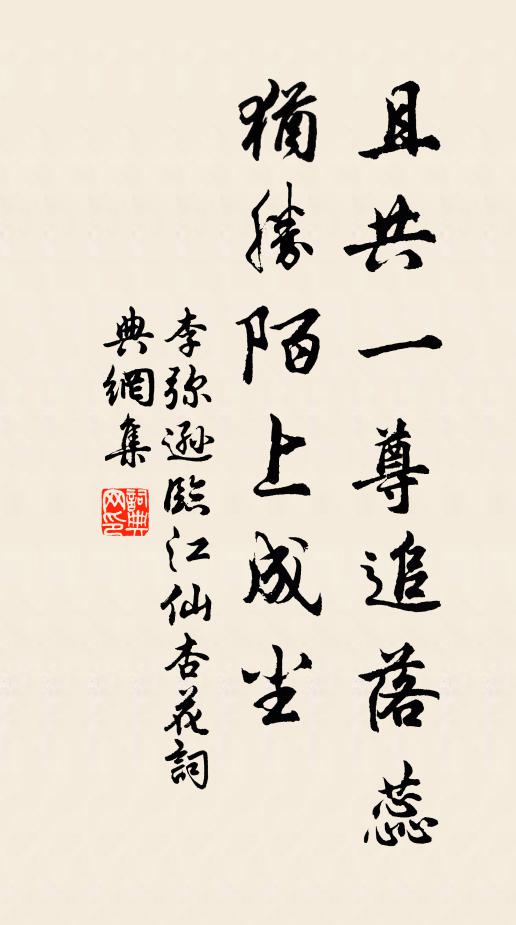 且共一尊追落蕊
猶勝陌上成尘
李弥遜臨江仙杏花詞
典網集
詞典网印